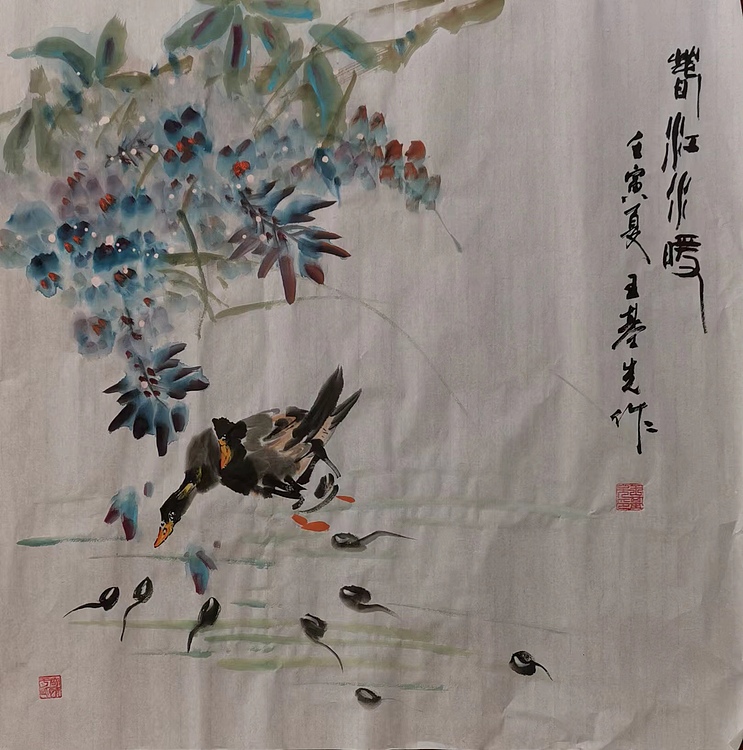 春江水暖
壬寅夏 王基先作